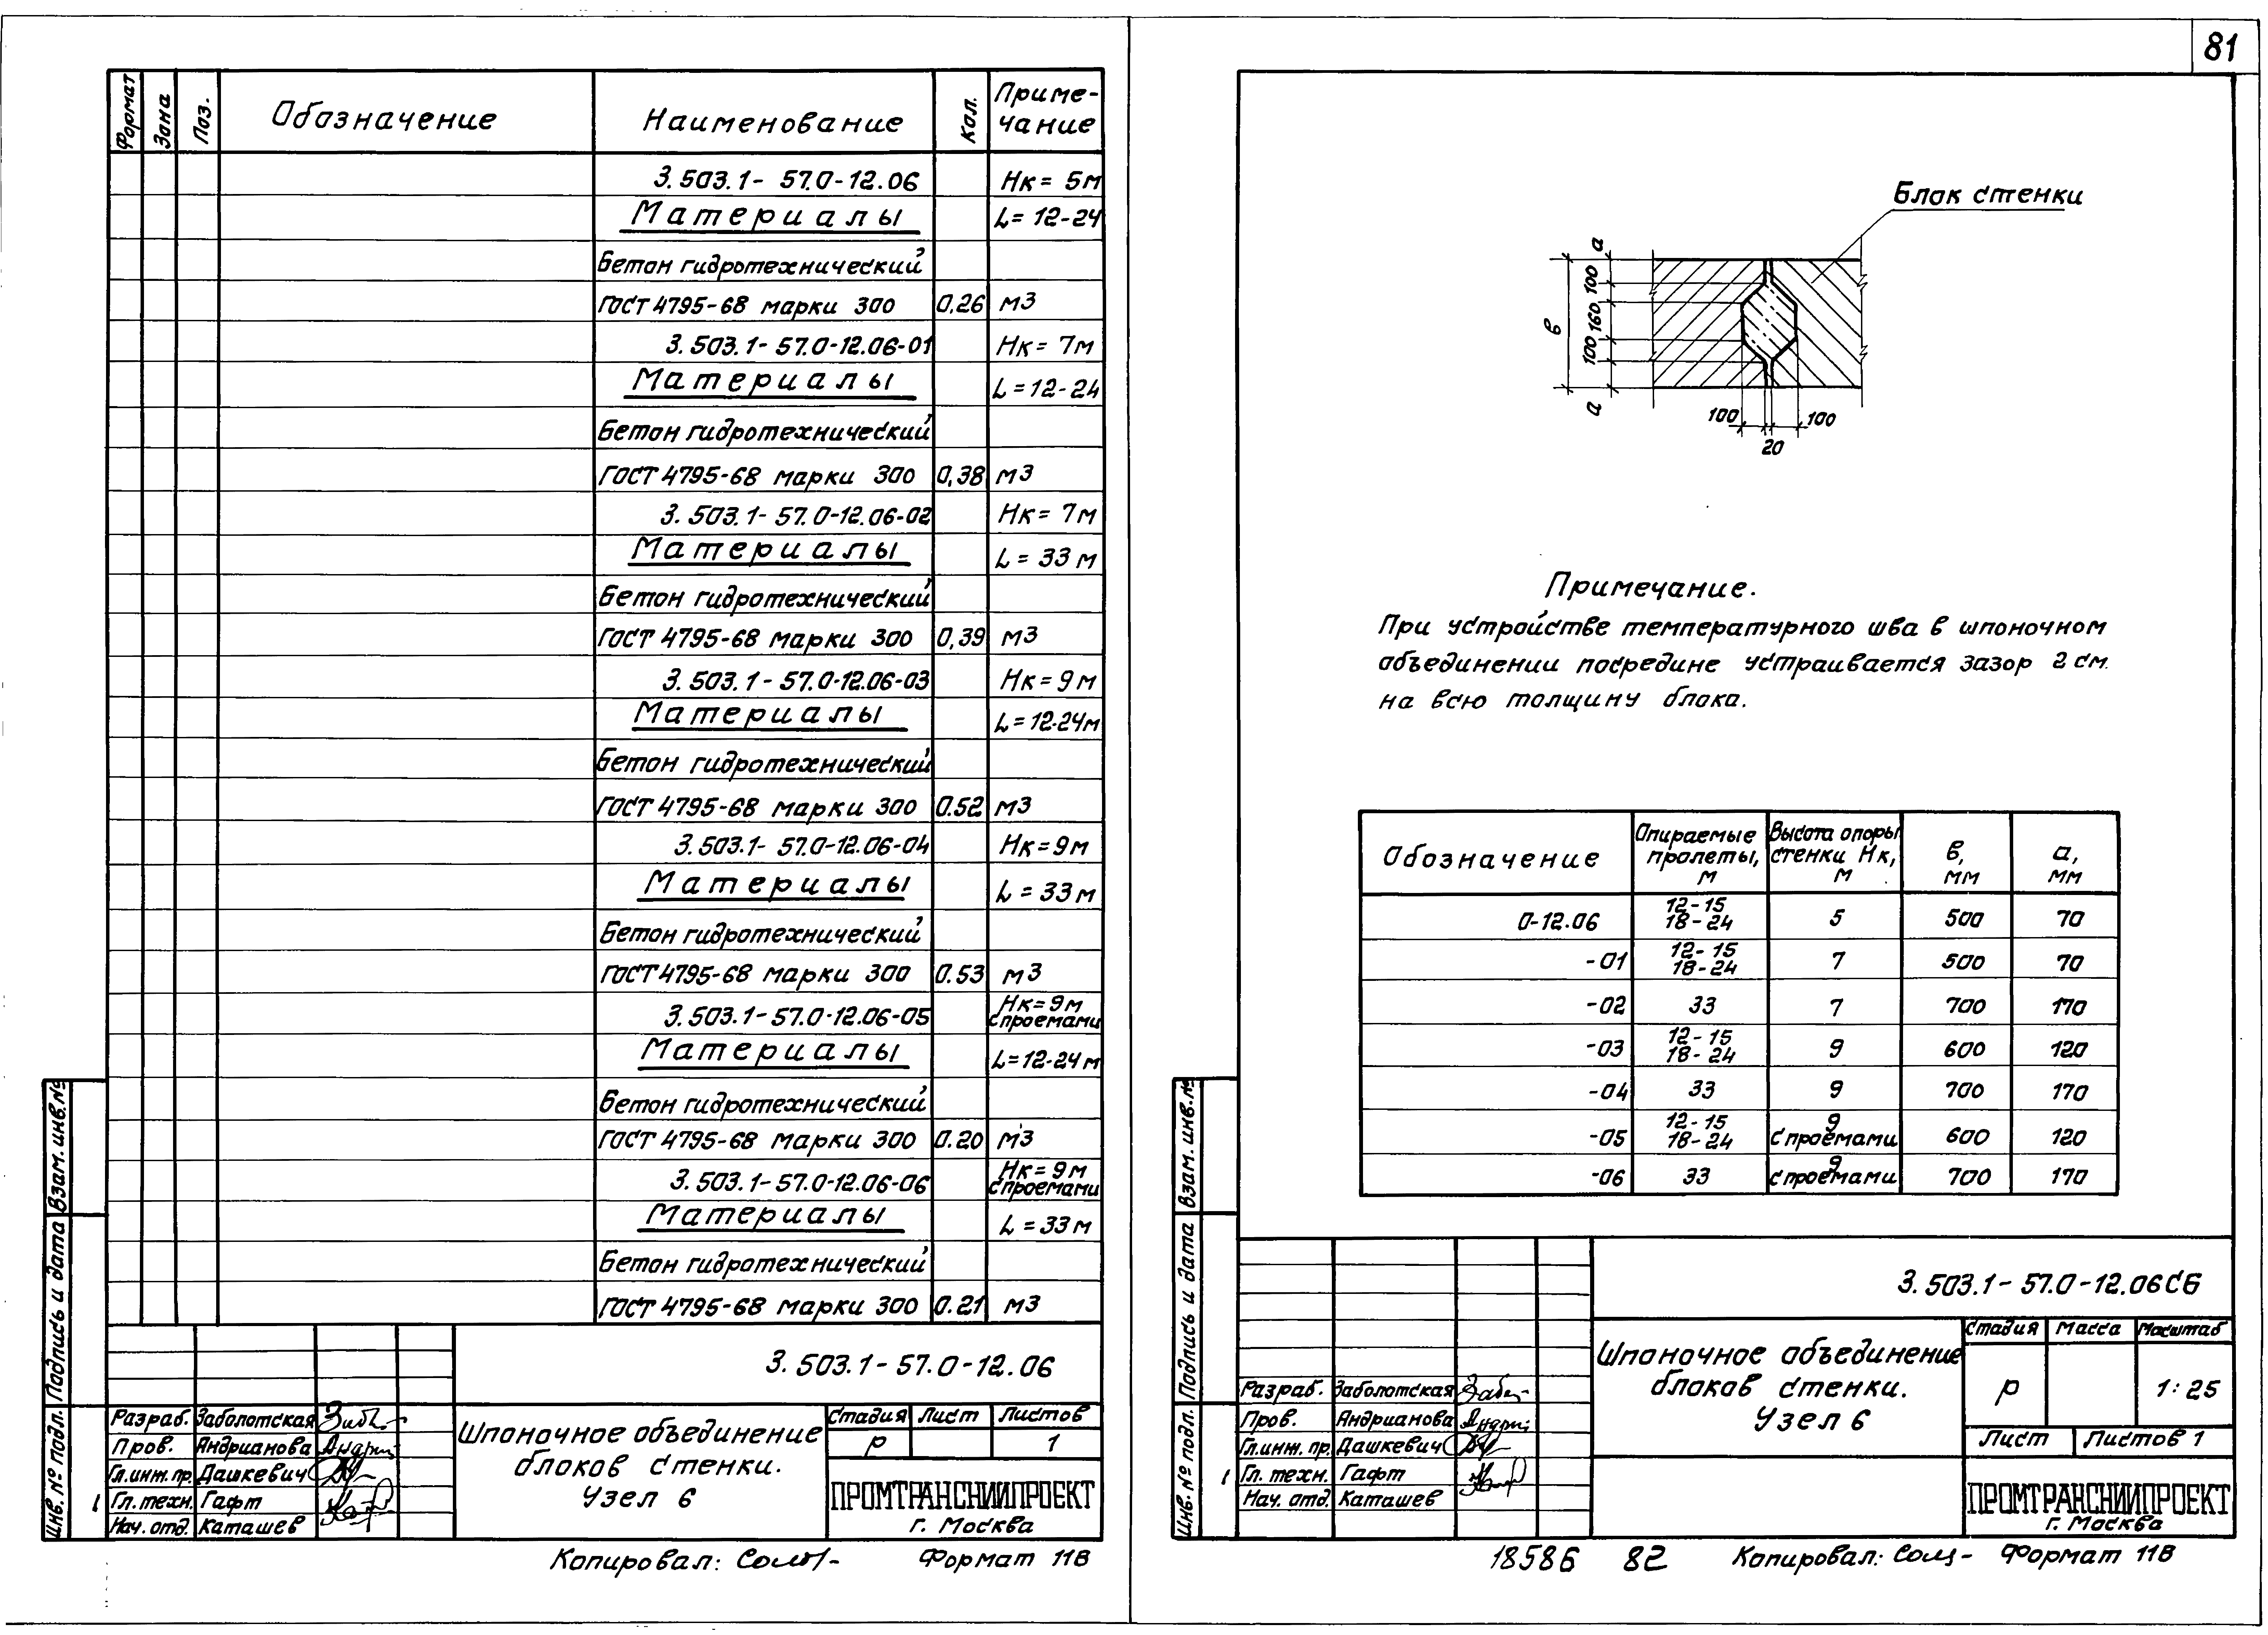 81
Формат
Зона
Поз.
Обозначение
Наименование
Кол.
Приме-
чание
3.503.1-57.0-12.06
Нк = 5м
Материалы
L = 12-24
Бетон гидротехнический
ГОСТ 4795-68 марки 300 0,26 м3
3.503.1-57.0-12.06-01
Нк = 7м
Материалы
L = 12-24
Бетон гидротехнический
ГОСТ 4795-68 марки 300 0,38 м3
3.503.1-57.0-12.06-02
Нк = 7м
Материалы
L = 33 м
Бетон гидротехнический
ГОСТ 4795-68 марки 300 0,39 м3
3.503.1-57.0-12.06-03
Нк = 9м
Материалы
L = 12-24м
Бетон гидротехнический
ГОСТ 4795-68 марки 300 0.52 м3
3.503.1-57.0-12.06-04
Нк = 9м
Материалы
L = 33 м
Бетон гидротехнический
ГОСТ 4795-68 марки 300 0.53 м3
3.503.1-57.0-12.06-05
Нк = 9м
с проемами
Материалы
L = 12-24 м
Бетон гидротехнический
ГОСТ 4795-68 марки 300 0.20 м3
3.503.1-57.0-12.06-06
Нк = 9м
с проемами
Материалы
L = 33 м
Бетон гидротехнический
ГОСТ 4795-68 марки 300 0.21 м3
3.503.1-57.0-12.06
Разраб. Заболотская
Пров. Андрианова
Гл.инж.пр. Дашкевич
Гл.техн. Гафт
Нач. отд. Каташев
Шпоночное объединение
блоков стенки.
Узел 6
Стадия Лист Листов
Р 1
ПРОМТРАНСНИИПРОЕКТ
г. Москва
Инв. № подл. Подпись и дата Взам. инв. №
1
Копировал: Формат 11В
Блок стенки
а
100
160
100
а
в
100
20
100
Примечание.
При устройстве температурного шва в шпоночном
объединении посредине устраивается зазор 2 см.
на всю толщину блока.
Обозначение
Опираемые
пролеты,
м
Высота опоры
стенки Нк,
м
в,
мм
а,
мм
0-12.06 12-15 18-24 5 500 70
-01 12-15 18-24 7 500 70
-02 33 7 700 170
-03 12-15 18-24 9 600 120
-04 33 9 700 170
-05 12-15 18-24 9 с проемами 600 120
-06 33 9 с проемами 700 170
3.503.1-57.0-12.06СБ
Разраб. Заболотская
Пров. Андрианова
Гл.инж.пр. Дашкевич
Гл. техн. Гафт
Нач. отд. Каташев
Шпоночное объединение
блоков стенки.
Узел 6
Стадия Масса Масштаб
Р 1:25
Лист Листов 1
ПРОМТРАНСНИИПРОЕКТ
г. Москва
Инв. № подл. Подпись и дата Взам. инв. №
1
18586 82 Копировал: Формат 11В